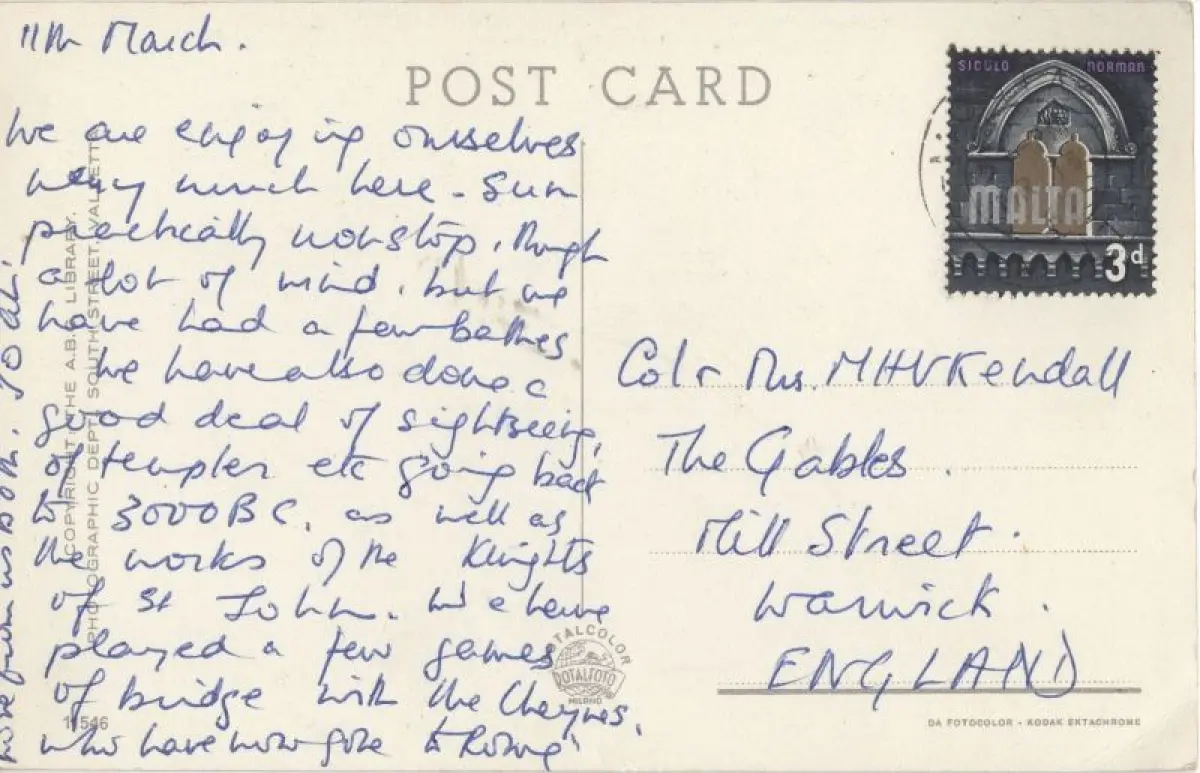 11th March.
POST CARD
We are enjoying ourselves
very much here - Sun
practically nonstop, though
a lot of wind, but we
have had a few bathes
We have also done a
good deal of sightseeing,
of temples etc going back
to 3000 BC, as well as
the works of the Knights
of St John. We have
played a few games
of bridge with the Cheynes,
who have now gone to Rome
love from us both.
COPYRIGHT THE A.B. LIBRARY.
PHOTOGRAPHIC DEPT. SOUTH STREET, VALLETTA
11546
SICULO NORMAN
MALTA
3d
Col & Mrs. MHVKendall
The Gables.
Mill Street.
Warwick.
ENGLAND
TALCOLOR
ROTALFOTO
MILANO
DA FOTOCOLOR - KODAK EKTACHROME